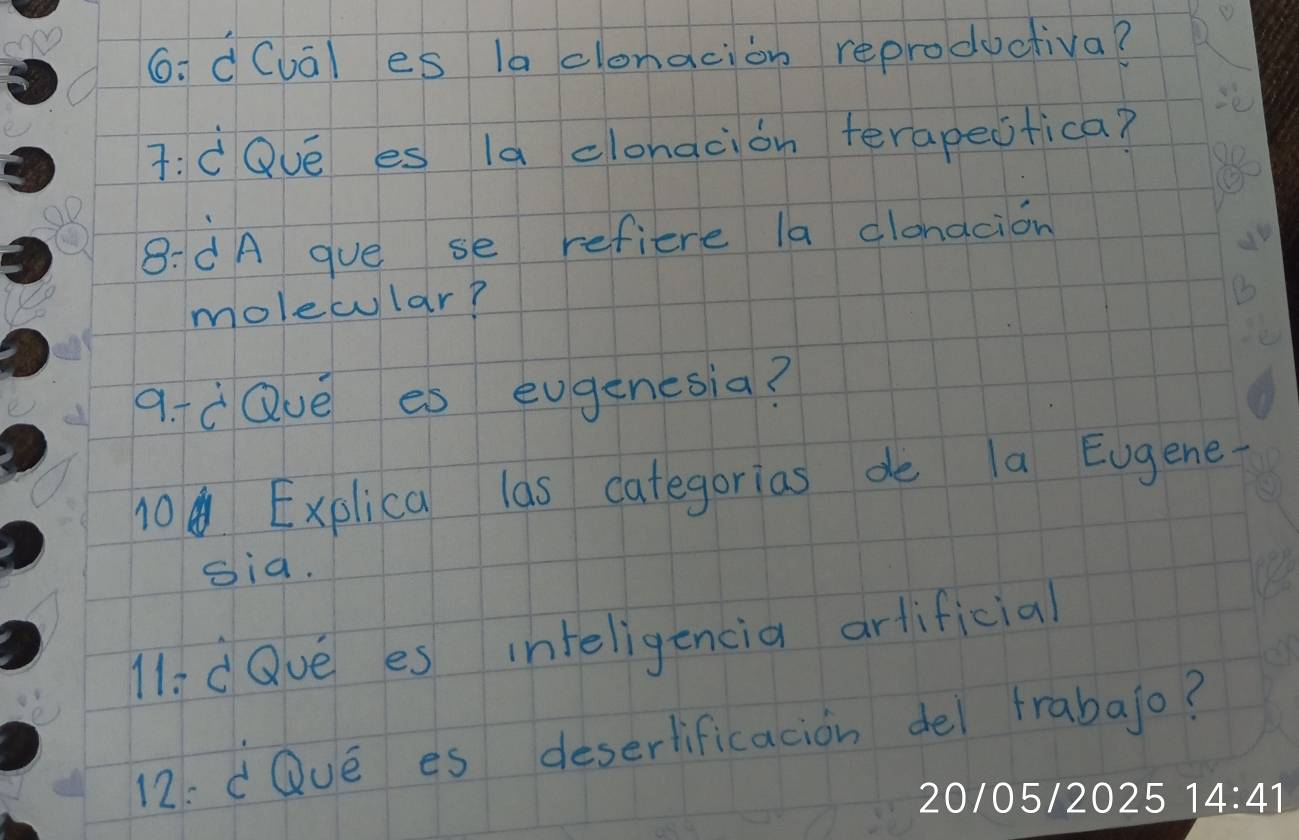 6.- ¿Cuál es la clonación reproductiva?
7.- ¿Qué es la clonación terapeútica?
8.- ¿A que se refiere la clonación
molecular?
9.- ¿Qué es eugenesia?
10. Explica las categorias de la Eugene-
sia.
11.- ¿Qué es inteligencia artificial
12.- ¿Qué es desertificación del trabajo?
20/05/2025 14:41